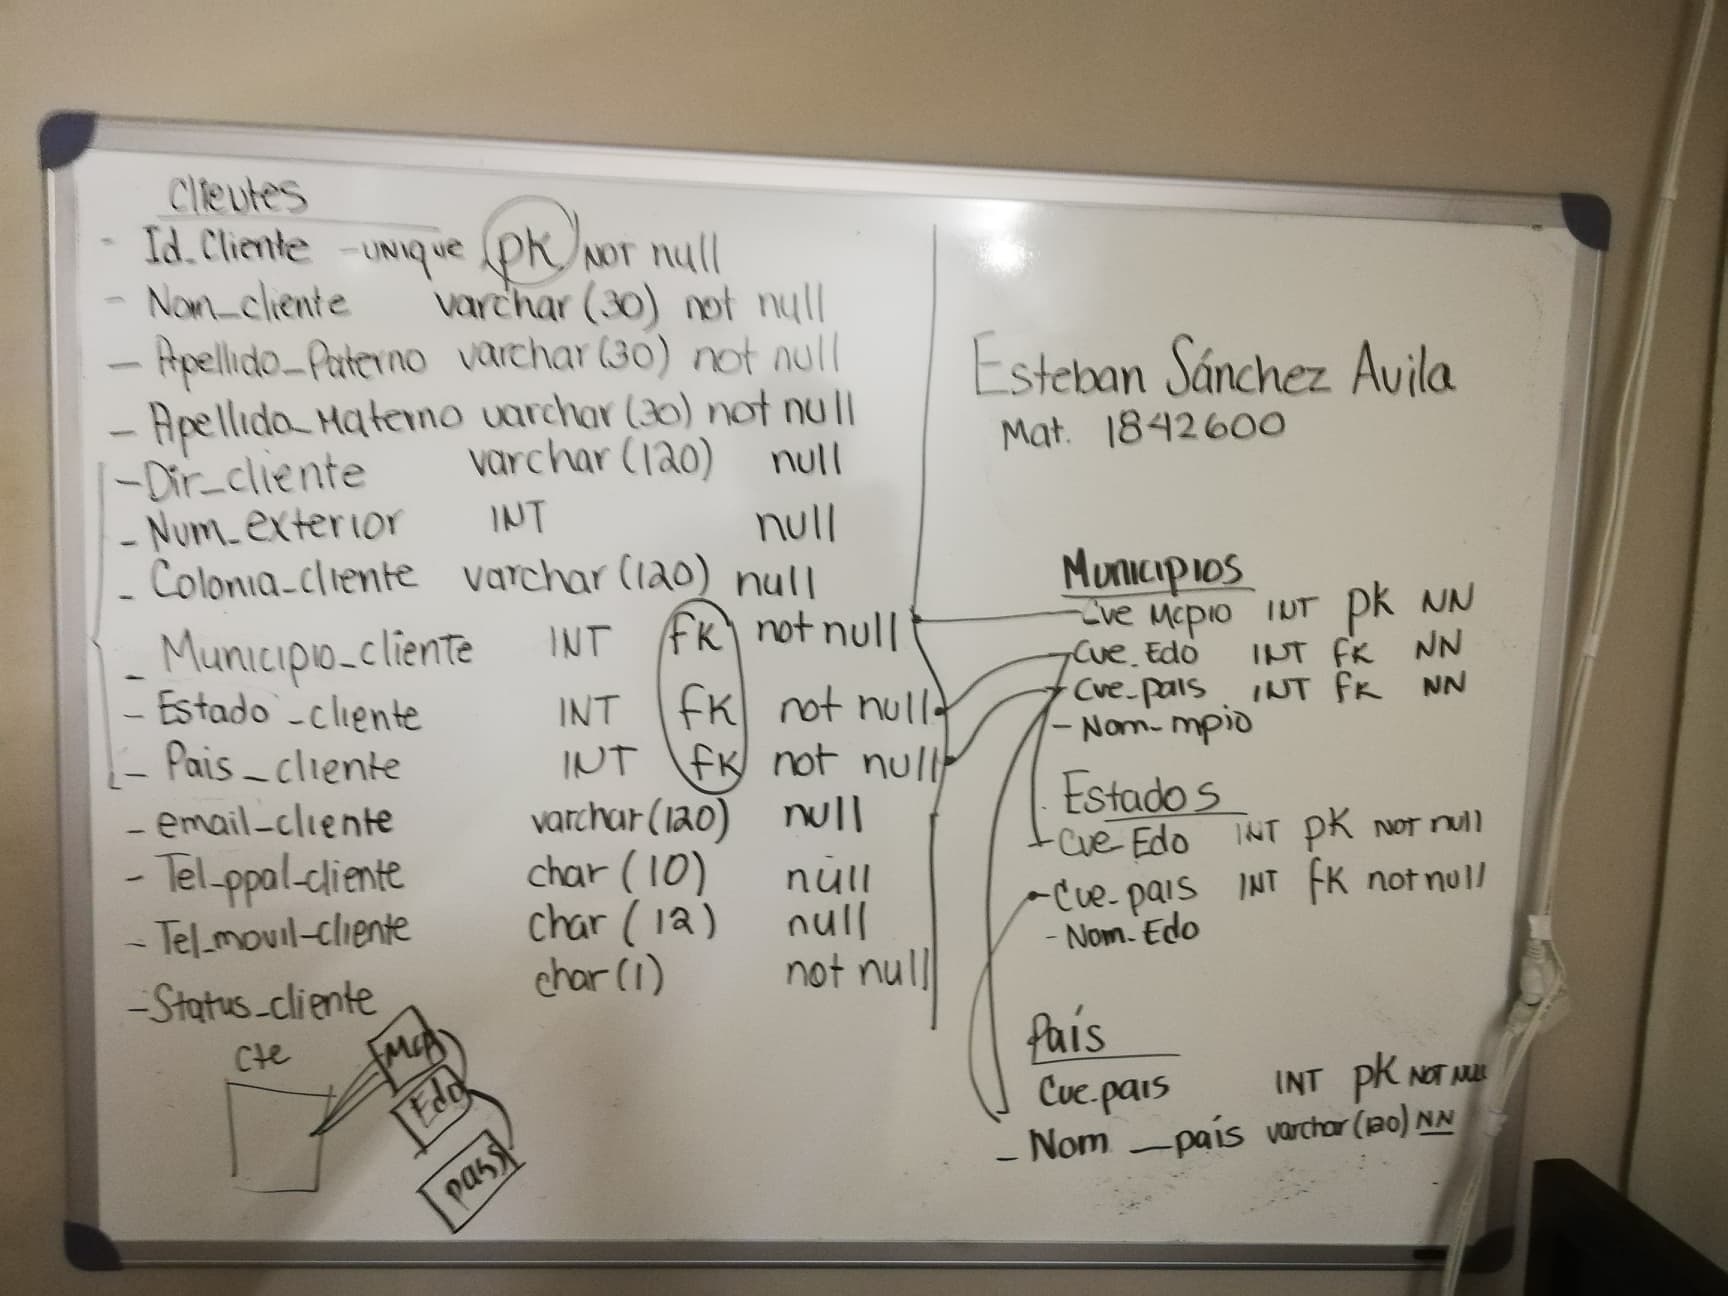 Clientes
- Id_Cliente - UNIQUE PK NOT null
- Nom_cliente varchar (30) not null
- Apellido_Paterno varchar (30) not null
- Apellido_Materno varchar (30) not null
- Dir_cliente varchar (120) null
- Num_exterior INT null
- Colonia_cliente varchar (120) null
- Municipio_cliente INT fK not null
- Estado_cliente INT fK not null
- Pais_cliente INT fK not null
- email_cliente varchar (120) null
- Tel_ppal_cliente char (10) null
- Tel_movil_cliente char (12) null
- Status_cliente char (1) not null
Cte
Mcp
Edo
país
Esteban Sánchez Avila
Mat. 1842600
Municipios
- Cve Mcpio INT PK NN
Cve_Edo INT fK NN
Cve_pais INT fK NN
- Nom_mpio
Estados
- Cve_Edo INT PK NOT null
- Cve_pais INT fK not null
- Nom_Edo
País
Cve_pais INT PK NOT NULL
- Nom_país varchar (120) NN